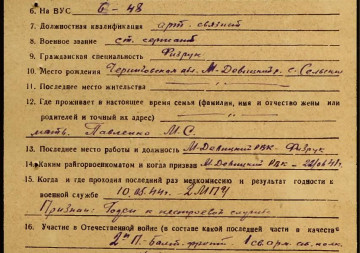 6. На ВУС Б-48
7. Должностная квалификация арт. связист
8. Военное звание ст. сержант
9. Гражданская специальность Физрук
10. Место рождения Черниговская обл. М-Девицкий р.
11. Последнее место жительства
12. Где проживает в настоящее время семья (фамилия, имя и отчество жены или
родителей и точный их адрес)
мать Павленко М. С.
13. Последнее место работы и должность М-Девицкий РВК - Физрук
14. Каким райгорвоенкоматом и когда призван М-Девицкий РВК -
15. Когда и где проходил последний раз медкомиссию и результат годности к
военной службе 10.03.44г. - 2 МПУ
Признан: Годен к нестроевой службе
16. Участие в Отечественной войне (в составе какой последней части и в качестве
2й П. Балт. фронт 1 св. арм. зап. полк.